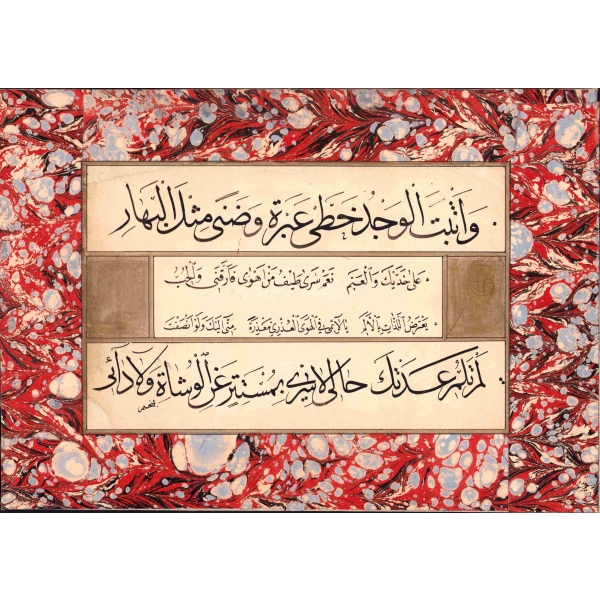 وَاَثْبَتَ الْوَجْدُ خَطَّىْ عَبْرَةٍ وَضَنًى مِثْلَ الْبَهَارِ
عَلٰى خَدَّيْكَ وَالْعَنَمِ نَعَمْ سَرٰى طَيْفُ مَنْ اَهْوٰى فَاَرَّقَنِى وَالْحُبُّ
يَعْتَرِضُ اللَّذَّاتِ بِالْاَلَمِ يَا لَائِمِى فِى الْهَوَى الْعُذْرِىِّ مَعْذِرَةً مِنِّى اِلَيْكَ وَلَوْ اَنْصَفْتَ
لَمْ تَلُمِ عَدَتْكَ حَالِىَ لَا سِرِّى بِمُسْتَتِرٍ عَنِ الْوُشَاةِ وَلَا دَائِى
بمنحسم